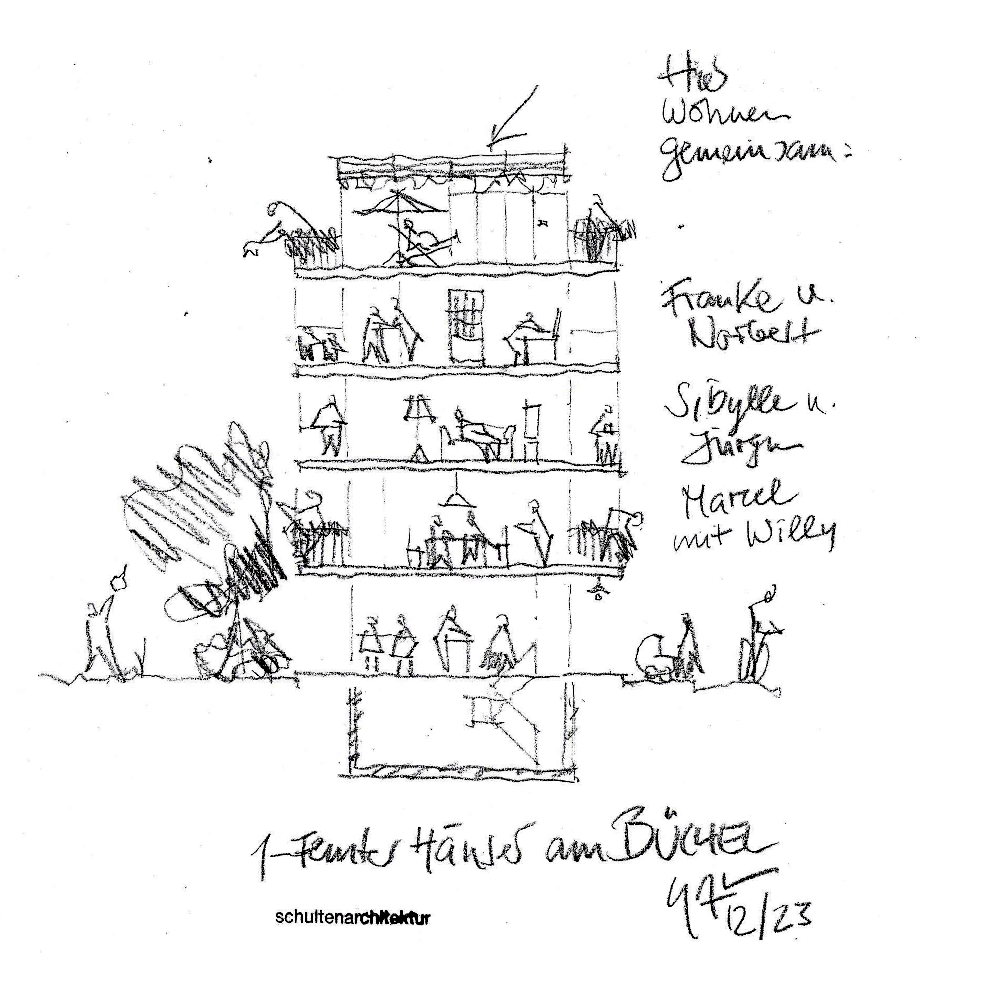 Hier
Wohnen
gemeinsam:
Frauke u.
Norbert
Sibylle u.
Jürgen
Marcel
mit Willy
1-Fenster Häuser am BÜCHEL
12/23
schultenarchitektur